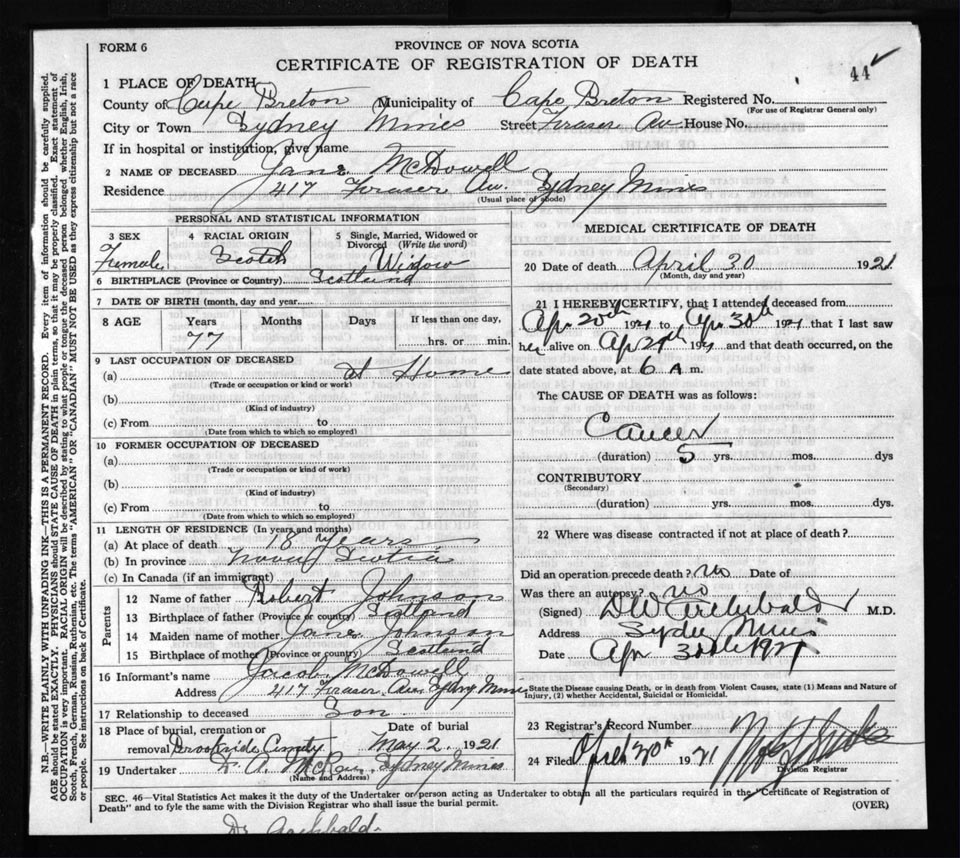 FORM 6
PROVINCE OF NOVA SCOTIA
CERTIFICATE OF REGISTRATION OF DEATH
44
1 PLACE OF DEATH
County of Cape Breton (Municipality of Cape Breton Registered No.
(For use of Registrar General only)
City or Town Sydney Mines Street Fraser Av House No.
If in hospital or institution, give name
2 NAME OF DECEASED Jane McDowell
Residence 417 Fraser Av. Sydney Mines
(Usual place of abode)
PERSONAL AND STATISTICAL INFORMATION
3 SEX 4 RACIAL ORIGIN 5 Single, Married, Widowed or Divorced (Write the word)
Female Scotch Widow
6 BIRTHPLACE (Province or Country) Scotland
7 DATE OF BIRTH (month, day and year)
8 AGE Years Months Days If less than one day,
77 hrs. or min.
9 LAST OCCUPATION OF DECEASED
(a) at Home
(Trade or occupation or kind or work)
(b)
(Kind of industry)
(c) From to
(Date from which to which so employed)
10 FORMER OCCUPATION OF DECEASED
(a)
(Trade or occupation or kind or work)
(b)
(Kind of industry)
(c) From to
(Date from which to which so employed)
11 LENGTH OF RESIDENCE (In years and months)
(a) At place of death 18 years
(b) In province Nova Scotia
(c) In Canada (if an immigrant)
Parents
12 Name of father Robert Johnson
13 Birthplace of father (Province or country) Scotland
14 Maiden name of mother Jane Johnson
15 Birthplace of mother (Province or country) Scotland
16 Informant's name Jacob McDowell
Address 417 Fraser Av. Sydny Mines
17 Relationship to deceased Son
18 Place of burial, cremation or Date of burial
removal Brookside Cemety May 2 1921
19 Undertaker Sydney Mines
(Name and Address)
MEDICAL CERTIFICATE OF DEATH
20 Date of death April 30 1921
(Month, day and year)
21 I HEREBY CERTIFY, that I attended deceased from
Apr 20th 1921 to Apr 30th 1921 that I last saw
her alive on Ap 1921 and that death occurred, on the
date stated above, at 6 A m.
The CAUSE OF DEATH was as follows:
Cancer
(duration) 5 yrs. mos. dys
CONTRIBUTORY
(Secondary)
(duration) yrs. mos. dys.
22 Where was disease contracted if not at place of death?
Did an operation precede death? no Date of
Was there an autopsy? no
(Signed) DW Archibald M.D.
Address Sydney Mines
Date Apr 30th 1921
State the Disease causing Death, or in death from Violent Causes, state (1) Means and Nature of
Injury, (2) whether Accidental, Suicidal or Homicidal.
23 Registrar's Record Number
24 Filed April 30th 1921
Division Registrar
SEC. 46—Vital Statistics Act makes it the duty of the Undertaker or person acting as Undertaker to obtain all the particulars required in the "Certificate of Registration of
Death" and to fyle the same with the Division Registrar who shall issue the burial permit.
(OVER)
Dr Archibald.
N.B.—WRITE PLAINLY WITH UNFADING INK—THIS IS A PERMANENT RECORD. Every item of information should be carefully supplied.
AGE should be stated EXACTLY. PHYSICIANS should STATE CAUSE OF DEATH in plain terms, so that it may be properly classified. Exact statement of
OCCUPATION is very important. RACIAL ORIGIN will be described by stating to what people or tongue the deceased person belonged, whether English, Irish,
Scotch, French, German, Russian, Ruthenian, etc. The terms "AMERICAN" or "CANADIAN" MUST NOT BE USED as they express citizenship but not a race
or people. See instructions on back of Certificate.